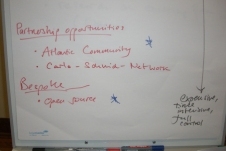 Partnership opportunities
• Atlantic Community
• Carlo-Schmid-Network
Bespoke
• Open source
expensive,
time
intensive,
full
control